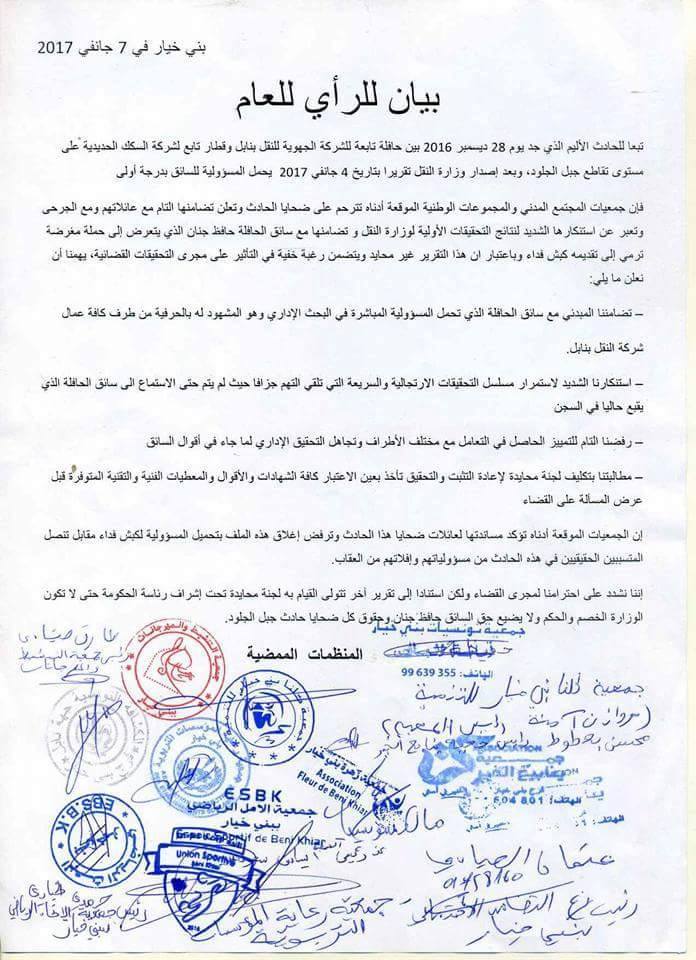 بني خيار في 7 جانفي 2017
بيان للرأي للعام
تبعا للحادث الأليم الذي جد يوم 28 ديسمبر 2016 بين حافلة تابعة للشركة الجهوية للنقل بنابل وقطار تابع لشركة السكك الحديدية على
مستوى تقاطع جبل الجلود، وبعد إصدار وزارة النقل تقريرا بتاريخ 4 جانفي 2017 يحمل المسؤولية للسائق بدرجة أولى
فإن جمعيات المجتمع المدني والمجموعات الوطنية الموقعة أدناه تترحم على ضحايا الحادث وتعلن تضامنها التام مع عائلاتهم ومع الجرحى
وتعبر عن استنكارها الشديد لنتائج التحقيقات الأولية لوزارة النقل و تضامنها مع سائق الحافلة حافظ جنان الذي يتعرض إلى حملة مغرضة
ترمي إلى تقديمه كبش فداء وباعتبار ان هذا التقرير غير محايد ويتضمن رغبة خفية في التأثير على مجرى التحقيقات القضائية، يهمنا أن
نعلن ما يلي:
– تضامننا المبدئي مع سائق الحافلة الذي تحمل المسؤولية المباشرة في البحث الإداري وهو المشهود له بالحرفية من طرف كافة عمال
شركة النقل بنابل.
– استنكارنا الشديد لاستمرار مسلسل التحقيقات الارتجالية والسريعة التي تلقي التهم جزافا حيث لم يتم حتى الاستماع الى سائق الحافلة الذي
يقبع حاليا في السجن
– رفضنا التام للتمييز الحاصل في التعامل مع مختلف الأطراف وتجاهل التحقيق الإداري لما جاء في أقوال السائق
– مطالبتنا بتكليف لجنة محايدة لإعادة التثبت والتحقيق تأخذ بعين الاعتبار كافة الشهادات والأقوال والمعطيات الفنية والتقنية المتوفرة قبل
عرض المسألة على القضاء
إن الجمعيات الموقعة أدناه تؤكد مساندتها لعائلات ضحايا هذا الحادث وترفض إغلاق هذه الملف بتحميل المسؤولية لكبش فداء مقابل تنصل
المتسببين الحقيقيين في هذه الحادث من مسؤولياتهم وإفلاتهم من العقاب.
إننا نشدد على احترامنا لمجرى القضاء ولكن استنادا إلى تقرير آخر تتولى القيام به لجنة محايدة تحت إشراف رئاسة الحكومة حتى لا تكون
الوزارة الخصم والحكم ولا يضيع حق السائق حافظ جنان وحقوق كل ضحايا حادث جبل الجلود.
المنظمات الممضية
جمعية تونسيات بني خيار
الهاتف: 355 639 99
جمعية التنشيط والمهرجانات
بني خيار
جمعية كلنا بني خيار للتنمية
جمعية زهرة بني خيار
Association
Fleur de Beni Khiar
ESBK
جمعية الأمل الرياضي
ببني خيار
Espoir Sportif de Beni Khiar
E.B.S.B.K
Union Sportive
جمعية
جمعية رعاية المؤسسات
التربوية
بني خيار